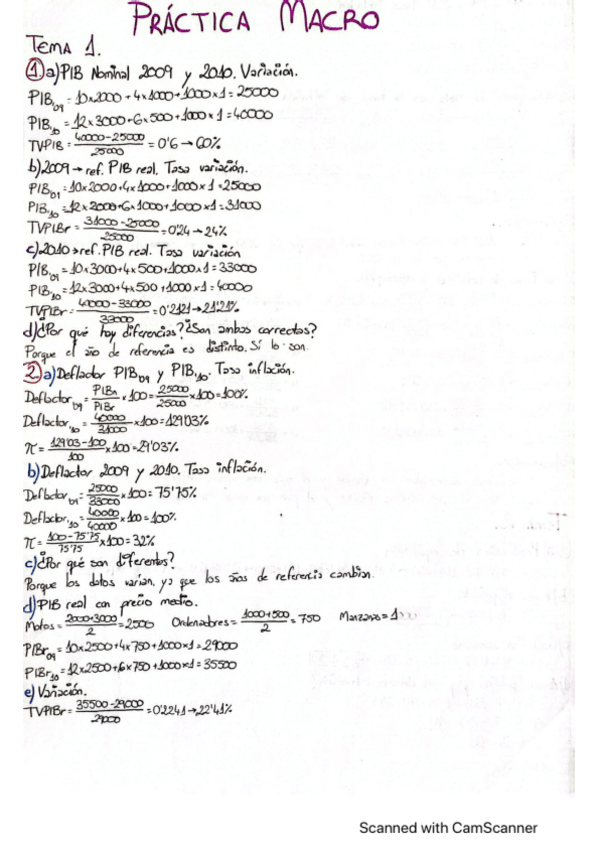 PRÁCTICA MACRO
TEMA 1.
1 a) PIB Nominal 2009 y 2010. Variación.
PIB09 = 10x2000 + 4x1000 + 1000x1 = 25000
PIB10 = 12x3000 + 6x500 + 1000x1 = 40000
TVPIB = 40000-25000 / 25000 = 0'6 → 60%
b) 2009 → ref. PIB real. Tasa variación.
PIB09 = 10x2000 + 4x1000 + 1000x1 = 25000
PIB10 = 12x2000 + 6x1000 + 1000x1 = 31000
TVPIBr = 31000-25000 / 25000 = 0'24 → 24%
c) 2010 → ref. PIB real. Tasa variación
PIB09 = 10x3000 + 4x500 + 1000x1 = 33000
PIB10 = 12x3000 + 4x500 + 1000x1 = 40000
TVPIBr = 40000-33000 / 33000 = 0'2121 → 21'21%
d) ¿Por qué hay diferencias? ¿Son ambas correctas?
Porque el año de referencia es distinto. Sí lo son.
2 a) Deflactor PIB09 y PIB10. Tasa inflación.
Deflactor09 = PIBn / PIBr x100 = 25000 / 25000 x100 = 100%
Deflactor10 = 40000 / 31000 x100 = 129'03%
π = 129'03-100 / 100 x100 = 29'03%
b) Deflactor 2009 y 2010. Tasa inflación.
Deflactor09 = 25000 / 33000 x100 = 75'75%
Deflactor10 = 40000 / 40000 x100 = 100%
π = 100-75'75 / 75'75 x100 = 32%
c) ¿Por qué son diferentes?
Porque los datos varían, ya que los años de referencia cambian.
d) PIB real con precio medio.
Motos = 2000+3000 / 2 = 2500 Ordenadores = 1000+500 / 2 = 750 Manzanas = 1
PIBr09 = 10x2500 + 4x750 + 1000x1 = 29000
PIBr10 = 12x2500 + 6x750 + 1000x1 = 35500
e) Variación.
TVPIBr = 35500-29000 / 29000 = 0'2241 → 22'41%
Scanned with CamScanner